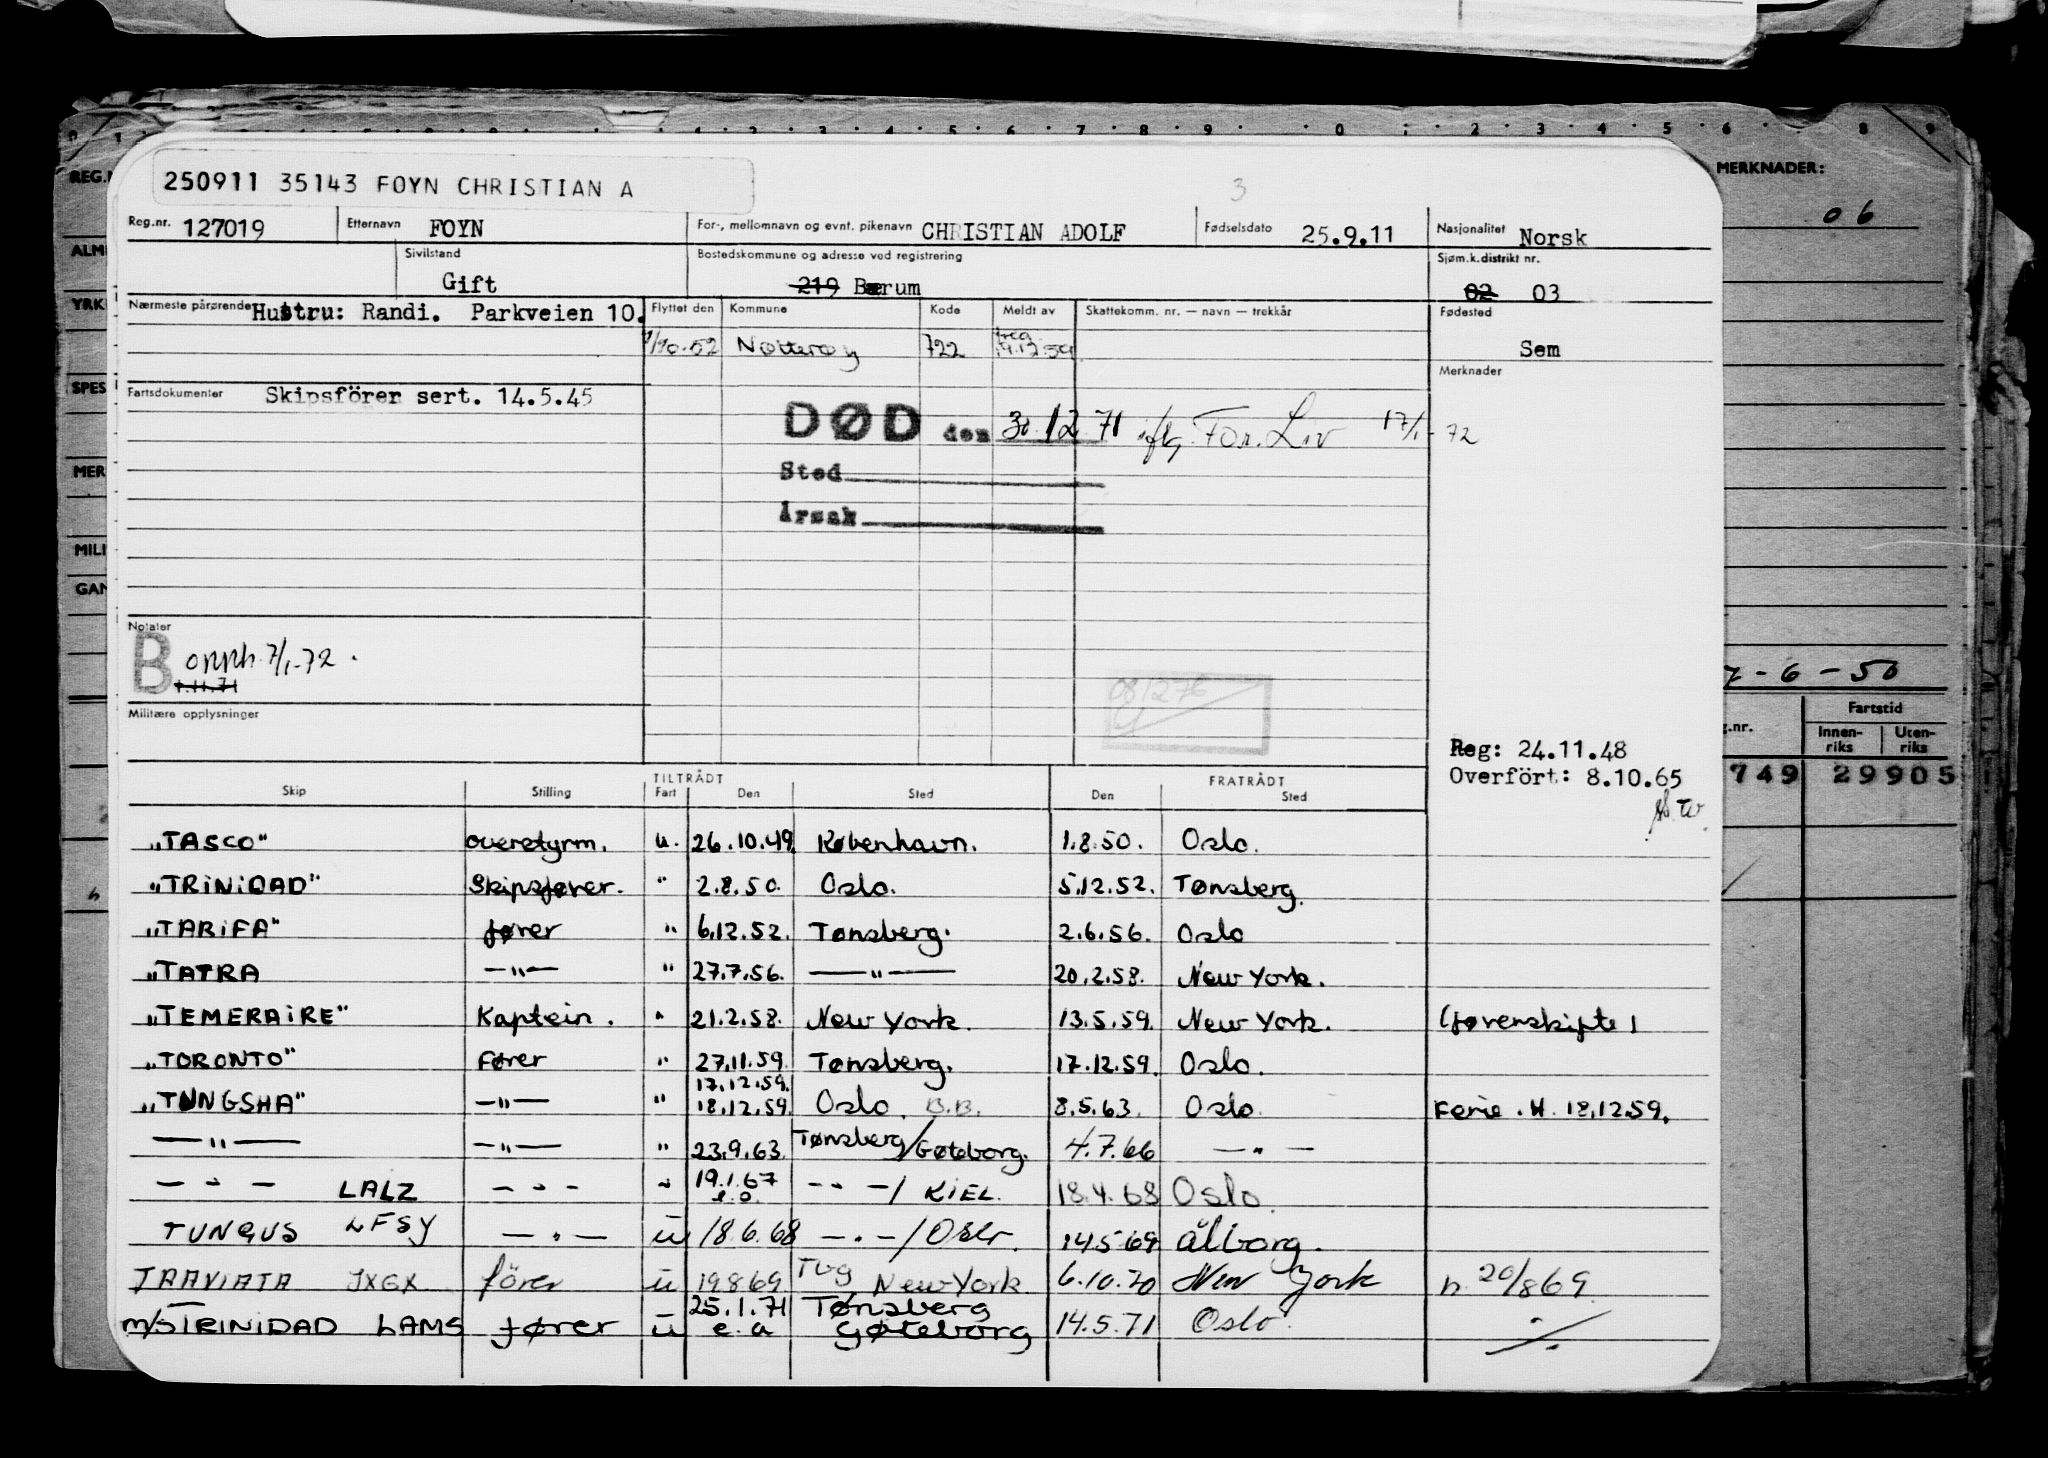 MERKNADER:
06
250911 35143 FOYN CHRISTIAN A
3
Reg.nr. 127019 Etternavn FOYN For-, mellomnavn og evnt. pikenavn CHRISTIAN ADOLF Fødselsdato 25.9.11 Nasjonalitet Norsk
Sivilstand Gift Bostedskommune og adresse ved registrering 219 Bærum Sjøm.k.distrikt nr. 02 03
Nærmeste pårørende Hustru: Randi. Parkveien 10. Flyttet den Kommune Kode Meldt av Skattekomm. nr. — navn — trekkår Fødested
Nøtterøy 722 Sem
Merknader
Fartsdokumenter Skipsförer sert. 14.5.45
DØD den 30.12.71 iflg. For. Liv 17/1-72
Sted
Årsak
Notater
B opph. 7/1-72.
1.11.71
Militære opplysninger
081276
7-6-50
Reg: 24.11.48
Overfört: 8.10.65
Fartstid
Innen-riks Uten-riks
749 29905
TILTRÅDT FRATRÅDT
Skip Stilling Fart Den Sted Den Sted
"TASCO" overstyrm. u. 26.10.49. København. 1.8.50. Oslo.
"TRINIDAD" Skipsfører. " 2.8.50. Oslo. 5.12.52. Tønsberg.
"TARIFA" fører " 6.12.52. Tønsberg. 2.6.56. Oslo
"TATRA —"— " 27.7.56. —"— 20.2.58. New York.
"TEMERAIRE" Kaptein. " 21.2.58. New York. 13.5.59. New York. (førerskifte)
"TORONTO" Fører " 27.11.59. Tønsberg. 17.12.59. Oslo.
17.12.59.
"TUNGSHA" —"— " 18.12.59. Oslo. B.B. 8.5.63. Oslo. Ferie. H. 18.12.59.
—"— —"— " 23.9.63. Tønsberg/Gøteborg. 4.7.66 —"—
—"— LALZ —"— " 19.1.67 e.o. —"—/ KIEL. 18.4.68 Oslo.
TUNGUS LFSY —"— u 18.6.68 —"—/Oslo. 14.5.69 Ålborg.
TRAVIATA JXGX fører u 19.8.69 Tbg New York. 6.10.70 New York n. 20/8 69
m/s TRINIDAD LAMS fører u 25.1.71 e.a Tønsberg Gøteborg 14.5.71 Oslo.